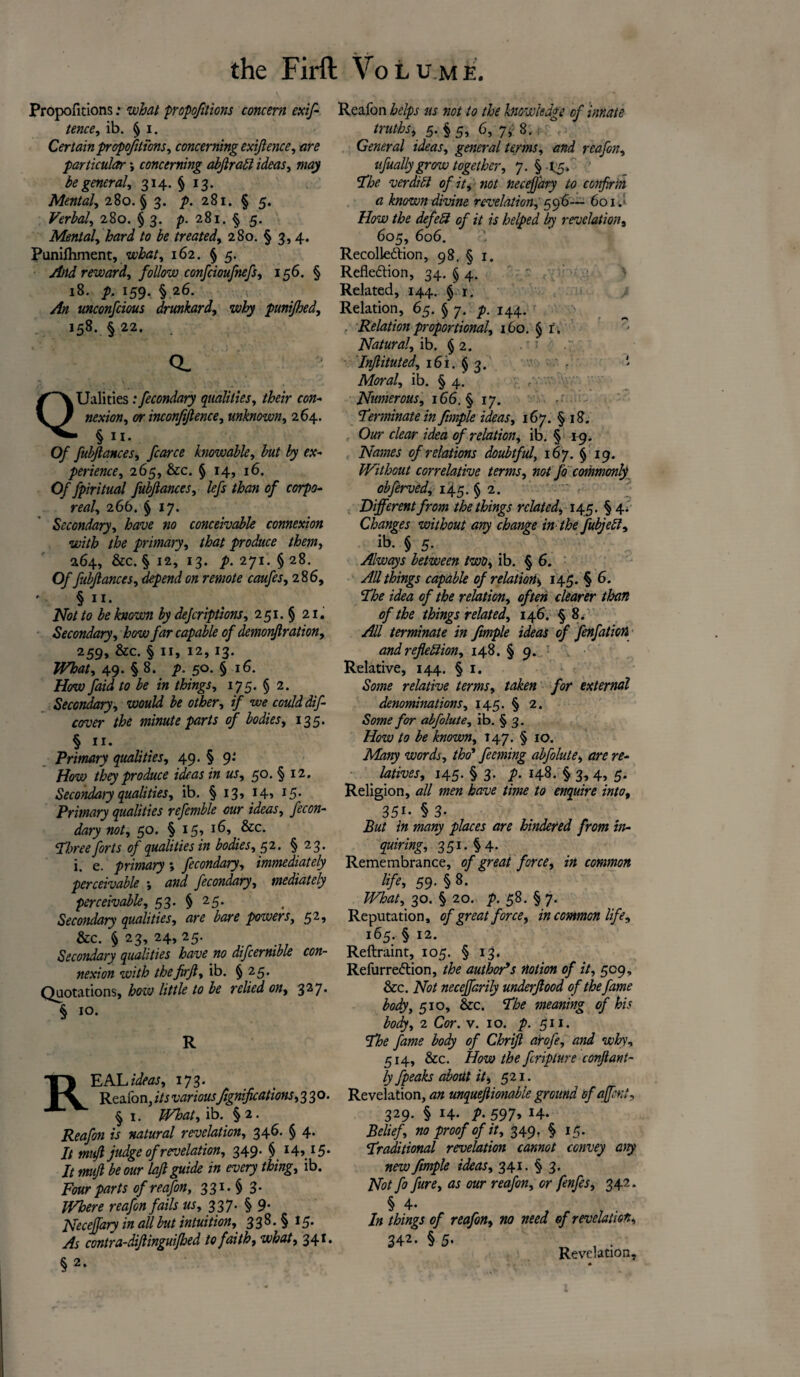 the Firſt VOLUME.
Propoſitions: what propoſitions concern exiſ-
tence, ib. § 1.
Certain propoſitions, concerning exiſtence, are
particular; concerning abſtract ideas, may
be general, 314. § 13.
Mental, 280. § 3. p. 281. § 5.
Verbal, 280. § 3. p. 281. § 5.
Mental, hard to be treated, 280. § 3, 4.
Puniſhment, what, 162. § 5.
And reward, follow conſciouſneſs, 156. §
18. p. 159. § 26.
An unconſcious drunkard, why puniſhed,
158. § 22.
Q
QUalities: ſecondary qualities, their con-
nexion, or inconſiſtence, unknown, 264.
§ 11.
Of ſubſtances, ſcarce knowable, but by ex-
perience, 265, &c. § 14, 16.
Of ſpiritual ſubſtances, leſs than of corpo-
real, 266. § 17.
Secondary, have no conceivable connexion
with the primary, that produce them,
264, &c. § 12, 13. p. 271. § 28.
Of ſubſtances, depend on remote cauſes, 286,
§ 11.
Not to be known by deſcriptions, 251. § 21.
Secondary, how far capable of demonſtration,
259, &c. § 11, 12, 13.
What, 49. § 8. p. 50. § 16.
How ſaid to be in things, 175. § 2.
Secondary, would be other, if we could diſ-
cover the minute parts of bodies, 135.
§ 11.
Primary qualities, 49. § 9:
How they produce ideas in us, 50. § 12.
Secondary qualities, ib. § 13, 14, 15.
Primary qualities reſemble our ideas, ſecon-
dary not, 50. § 15, 16, &c.
Three ſorts of qualities in bodies, 52. § 23.
i. e. primary; ſecondary, immediately
perceivable; and ſecondary, mediately
perceivable, 53. § 25.
Secondary qualities, are bare powers, 52,
&c. § 23, 24, 25.
Secondary qualities have no diſcernible con-
nexion with the firſt, ib. § 25.
Quotations, how little to be relied on, 327.
§ 10.
R
REAL ideas, 173.
Reaſon, its various ſignifications, 330.
§ 1. What, ib. § 2.
Reaſon is natural revelation, 346. § 4.
It muſt judge of revelation, 349. § 14, 15.
It muſt be our laſt guide in every thing, ib.
Four parts of reaſon, 331. § 3.
Where reaſon fails us, 337. § 9.
Neceſſary in all but intuition, 338. § 15.
As contra-diſtinguiſhed to faith, what, 341.
§ 2.
Reaſon helps us not to the knowledge of innate
truths, 5. § 5, 6, 7, 8.
General ideas, general terms, and reaſon,
uſually grow together, 7. § 15.
The verdict of it, not neceſſary to confirm
a known divine revelation, 596— 601.
How the defect of it is helped by revelation,
605, 606.
Recollection, 98. § 1.
Reflection, 34. § 4.
Related, 144. § 1.
Relation, 65. § 7. p. 144.
Relation proportional, 160. § 1.
Natural, ib. § 2.
Inſtituted, 161. § 3.
Moral, ib. § 4.
Numerous, 166. § 17.
Terminate in ſimple ideas, 167. § 18.
Our clear idea of relation, ib. § 19.
Names of relations doubtful, 167. § 19.
Without correlative terms, not ſo commonly
obſerved, 145. § 2.
Different from the things related, 145. § 4.
Changes without any change in the ſubject,
ib. § 5.
Always between two, ib. § 6.
All things capable of relation, 145. § 6.
The idea of the relation, often clearer than
of the things related, 146. § 8.
All terminate in ſimple ideas of ſenſation
and reflection, 148. § 9.
Relative, 144. § 1.
Some relative terms, taken for external
denominations, 145. § 2.
Some for abſolute, ib. § 3.
How to be known, 147. § 10.
Many words, tho' ſeeming abſolute, are re-
latives, 145. § 3. p. 148. § 3, 4, 5.
Religion, all men have time to enquire into,
351. § 3.
But in many places are hindered from in-
quiring, 351. § 4.
Remembrance, of great force, in common
life, 59. § 8.
What, 30. § 20. p. 58. § 7.
Reputation, of great force, in common life,
165. § 12.
Reſtraint, 105. § 13.
Reſurrection, the author's notion of it, 509,
&c. Not neceſſarily underſtood of the ſame
body, 510, &c. The meaning of his
body, 2 Cor. v. 10. p. 511.
The ſame body of Chriſt aroſe, and why,
514, &c. How the ſcripture conſtant-
ly ſpeaks about it, 521.
Revelation, an unqueſtionable ground of aſſent,
329. § 14. p. 597, 14.
Belief, no proof of it, 349. § 15.
Traditional revelation cannot convey any
new ſimple ideas, 341. § 3.
Not ſo ſure, as our reaſon, or ſenſes, 342.
§ 4.
In things of reaſon, no need of revelation,
342. § 5.
Revelation,